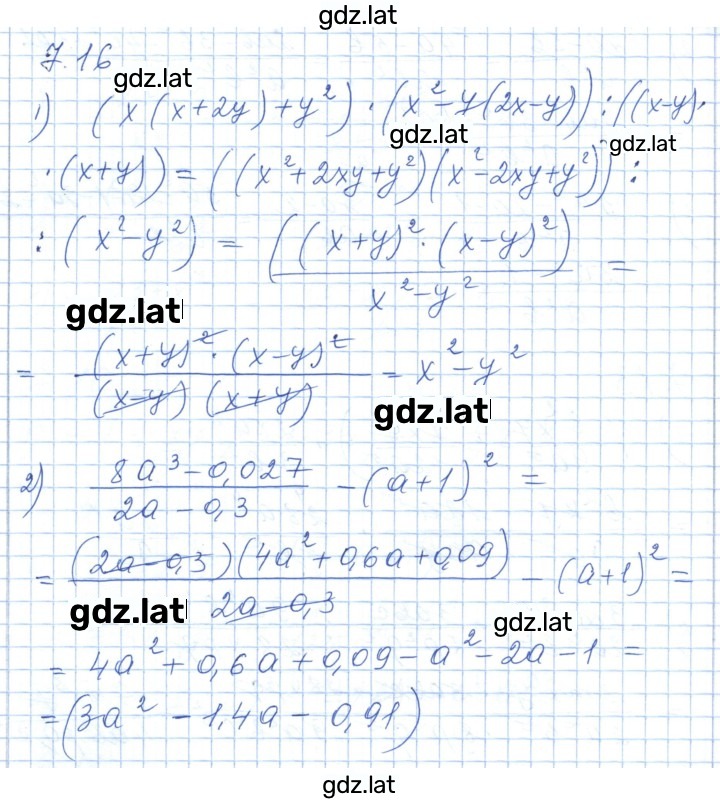 gdz.lat
7.16
gdz.lat
1) (x(x+2y)+y²)·(x²-y(2x-y)):((x-y)·
gdz.lat
gdz.lat
·(x+y))=((x²+2xy+y²)(x²-2xy+y²)):
:(x²-y²) = ((x+y)²·(x-y)²) / x²-y² =
gdz.lat
= (x+y)²·(x-y)² / (x-y)(x+y) = x²-y²
gdz.lat
2) 8a³-0,027 / 2a-0,3 -(a+1)² =
= (2a-0,3)(4a²+0,6a+0,09) / 2a-0,3 -(a+1)²=
gdz.lat
gdz.lat
= 4a²+0,6a+0,09-a²-2a-1 =
=(3a²-1,4a-0,91)
gdz.lat